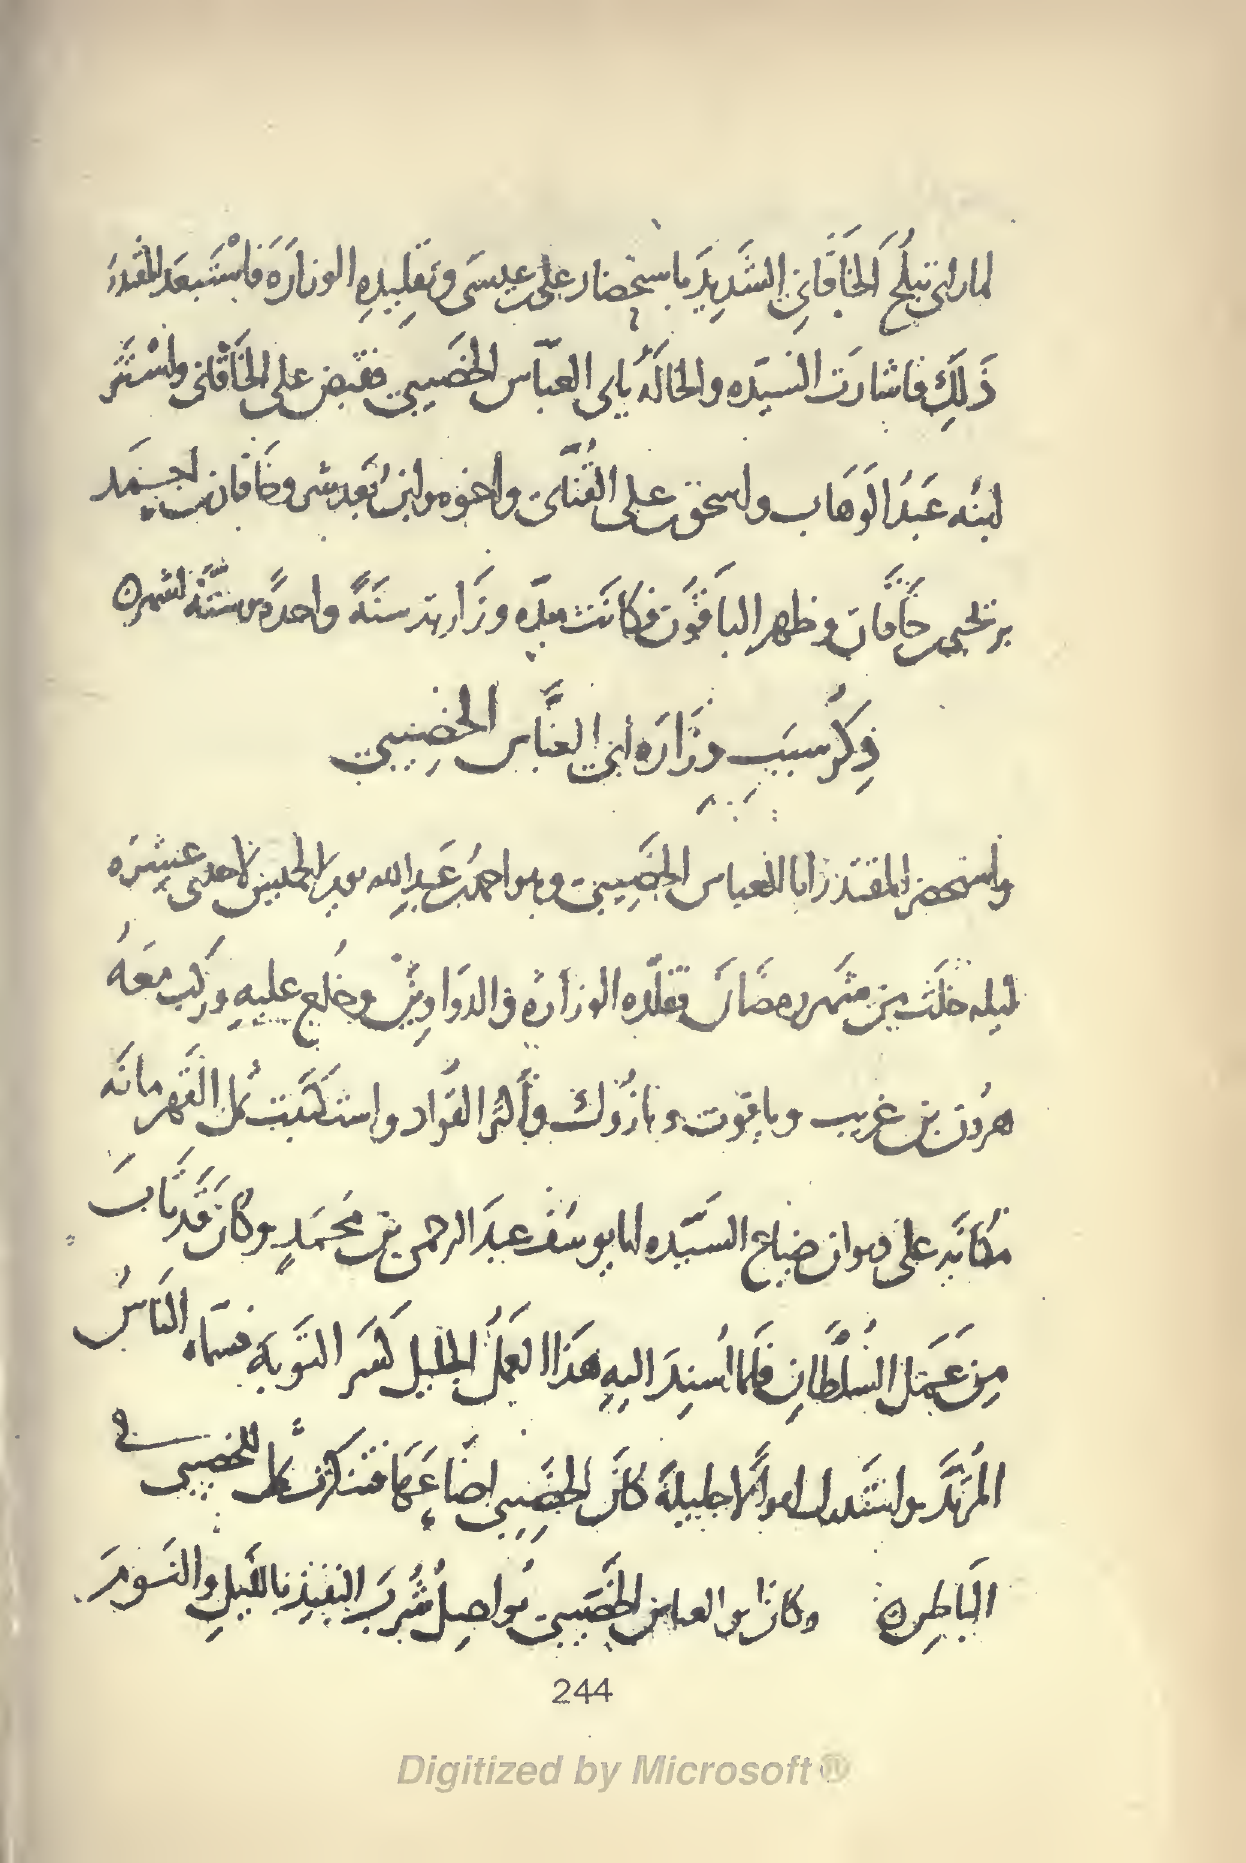 لما راى تبلح الخاقاني الشديد باستحضار على بن عيسَى وتقليدِهِ الوزارَة فاسْتَبعَد المقتدرُ
ذَلِكَ فاشارَت السيّده والخالةُ بابى العبّاس الخَصيبى فقبض على الخاقْانى واسْتتَر
ابنُه عَبدُ الوَهَاب واسحق بن على القُنّائى واخوه وابن بُعدشر وخاقان بن احمد
بن يحيى بن خَاقَان وظهر الباقُون فكانَت مدّه وزَارته سنَةً واحدةً وستّة اشهر ه
ذِكرُ سبَبِ وِزَارَه أبى العبّاس الخَصِيبى
واستحضر المقتدر ابا العباس الخَصِيبى وهو احمد بن عَبيدِ الله بن احمد بن الخصيب لاحدى عشرَه
ليله خلَت من شهر رمضَان فقلّده الوزارة والدوَاوِين وخلع عليهِ وركب معَهُ
هرُون بن غريب وياقوت ونازُوك وأكثر القوّاد واستكتَبت ثمل القَهرمانَه
مكانَه على ديوان ضياع السَيّده ابا يوسُف عبدَ الرحمن بن محمَدٍ وكان قَد تابَ
مِن عَمَل السُلْطانِ فَلما اُسنِدَ اليهِ هَذا العَمَلُ الجليل كسَر التَوبَة فسمّاه الناسُ
المُرتَدّ واستدرك اموالا جليلةً كانَ الخَصِيبى اضاعَها فتنكرت ثمل للخصيبى فى
الباطِن ه وكان ابو العباس الخَصَيبى يُواصِلُ شُربَ النبيذ بالليلِ والنَومَ
244
Digitized by Microsoft ®